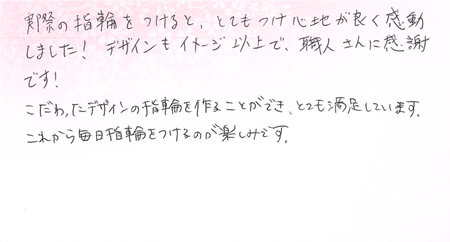 実際の指輪をつけると、とてもつけ心地が良く感動
しました! デザインもイメージ以上で、職人さんに感謝
です!
こだわったデザインの指輪を作ることができ、とても満足しています.
これから毎日指輪をつけるのが楽しみです.